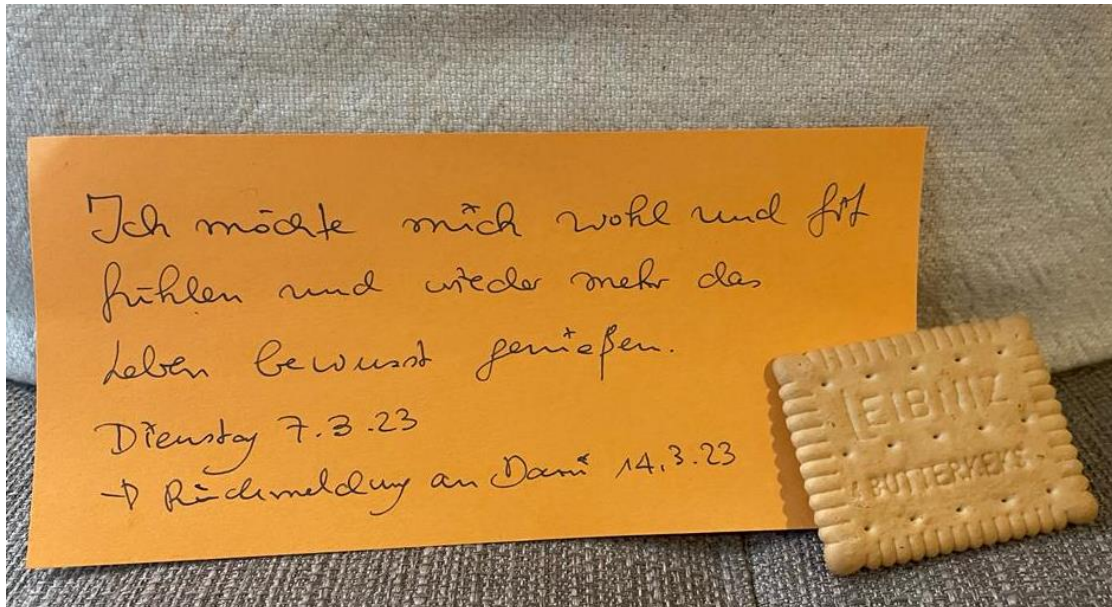 Ich möchte mich wohl und fit
fühlen und wieder mehr das
Leben bewusst genießen.
Dienstag 7.3.23
→ Rückmeldung an Dani 14.3.23
LEIBNIZ
BUTTERKEKS